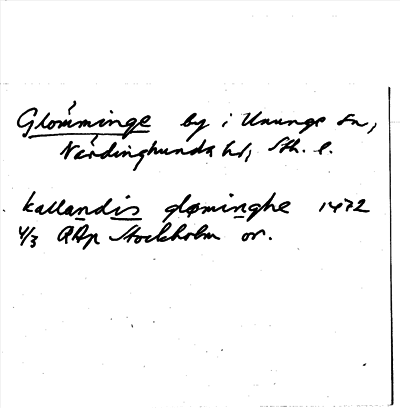 Glömminge by i Ununge sn,
Närdinghunda hd, Sth. l.
kallandis gløminghe 1472
4/3 RAp Stockholm or.